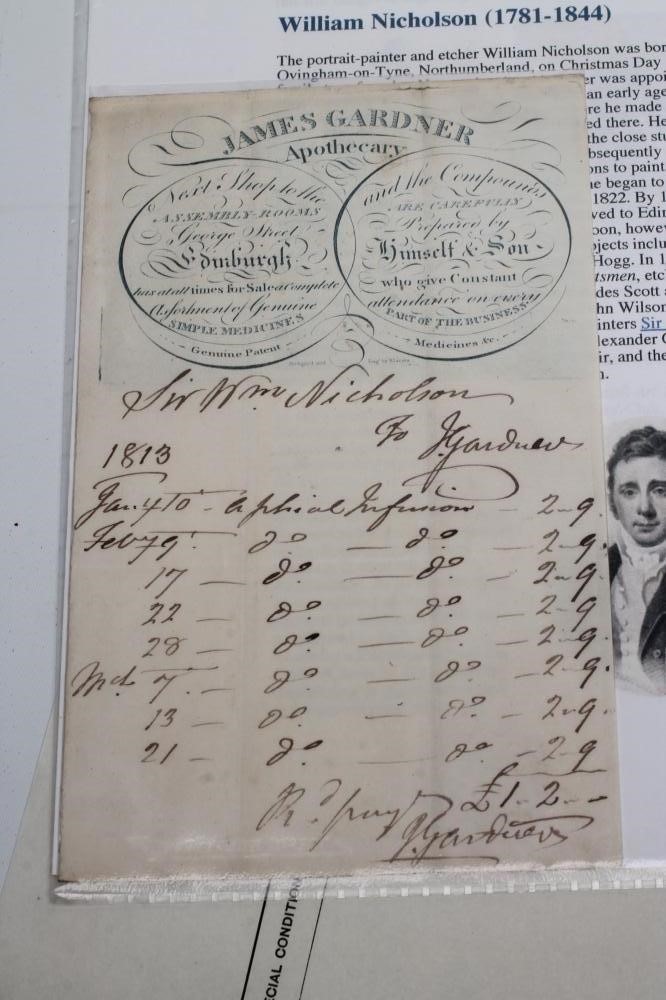 William Nicholson (1781-1844)
The portrait-painter and etcher William Nicholson was bor
Ovingham-on-Tyne, Northumberland, on Christmas Day
er was appoi
an early age
re he made
ed there. He
the close stu
bsequently
ons to paint
he began to
1822. By 1
ved to Edin
oon, howev
ojects inclu
Hogg. In 1
tsmen, etc
des Scott a
hn Wilson
inters Sir
lexander C
ir, and the
n.
JAMES GARDNER
Apothecary
Next Shop to the
ASSEMBLY-ROOMS
George Street
Edinburgh
has at all times for Sale a Complete
Assortment of Genuine
SIMPLE MEDICINES
Genuine Patent
and the Compounds
ARE CAREFULLY
Prepared by
Himself & Son
who give Constant
attendance on every
PART OF THE BUSINESS
Medicines &c.
Sir Wm Nicholson
To J Gardner
1813
Jan. 4 To - a phial Infusion - 2 - 9.
Feby 9. do — do. - 2 - 9
17 — do. — do. - 2 - 9
22 — do — do. — 2 - 9
28 — do — do. — 2 - 9.
Mch. 7. — do — do. - 2 - 9.
13 — do — do. — 2 - 9.
21 — do. do — 2 - 9
£1 - 2 - -
Rd payt
J. Gardner
CIAL CONDITION